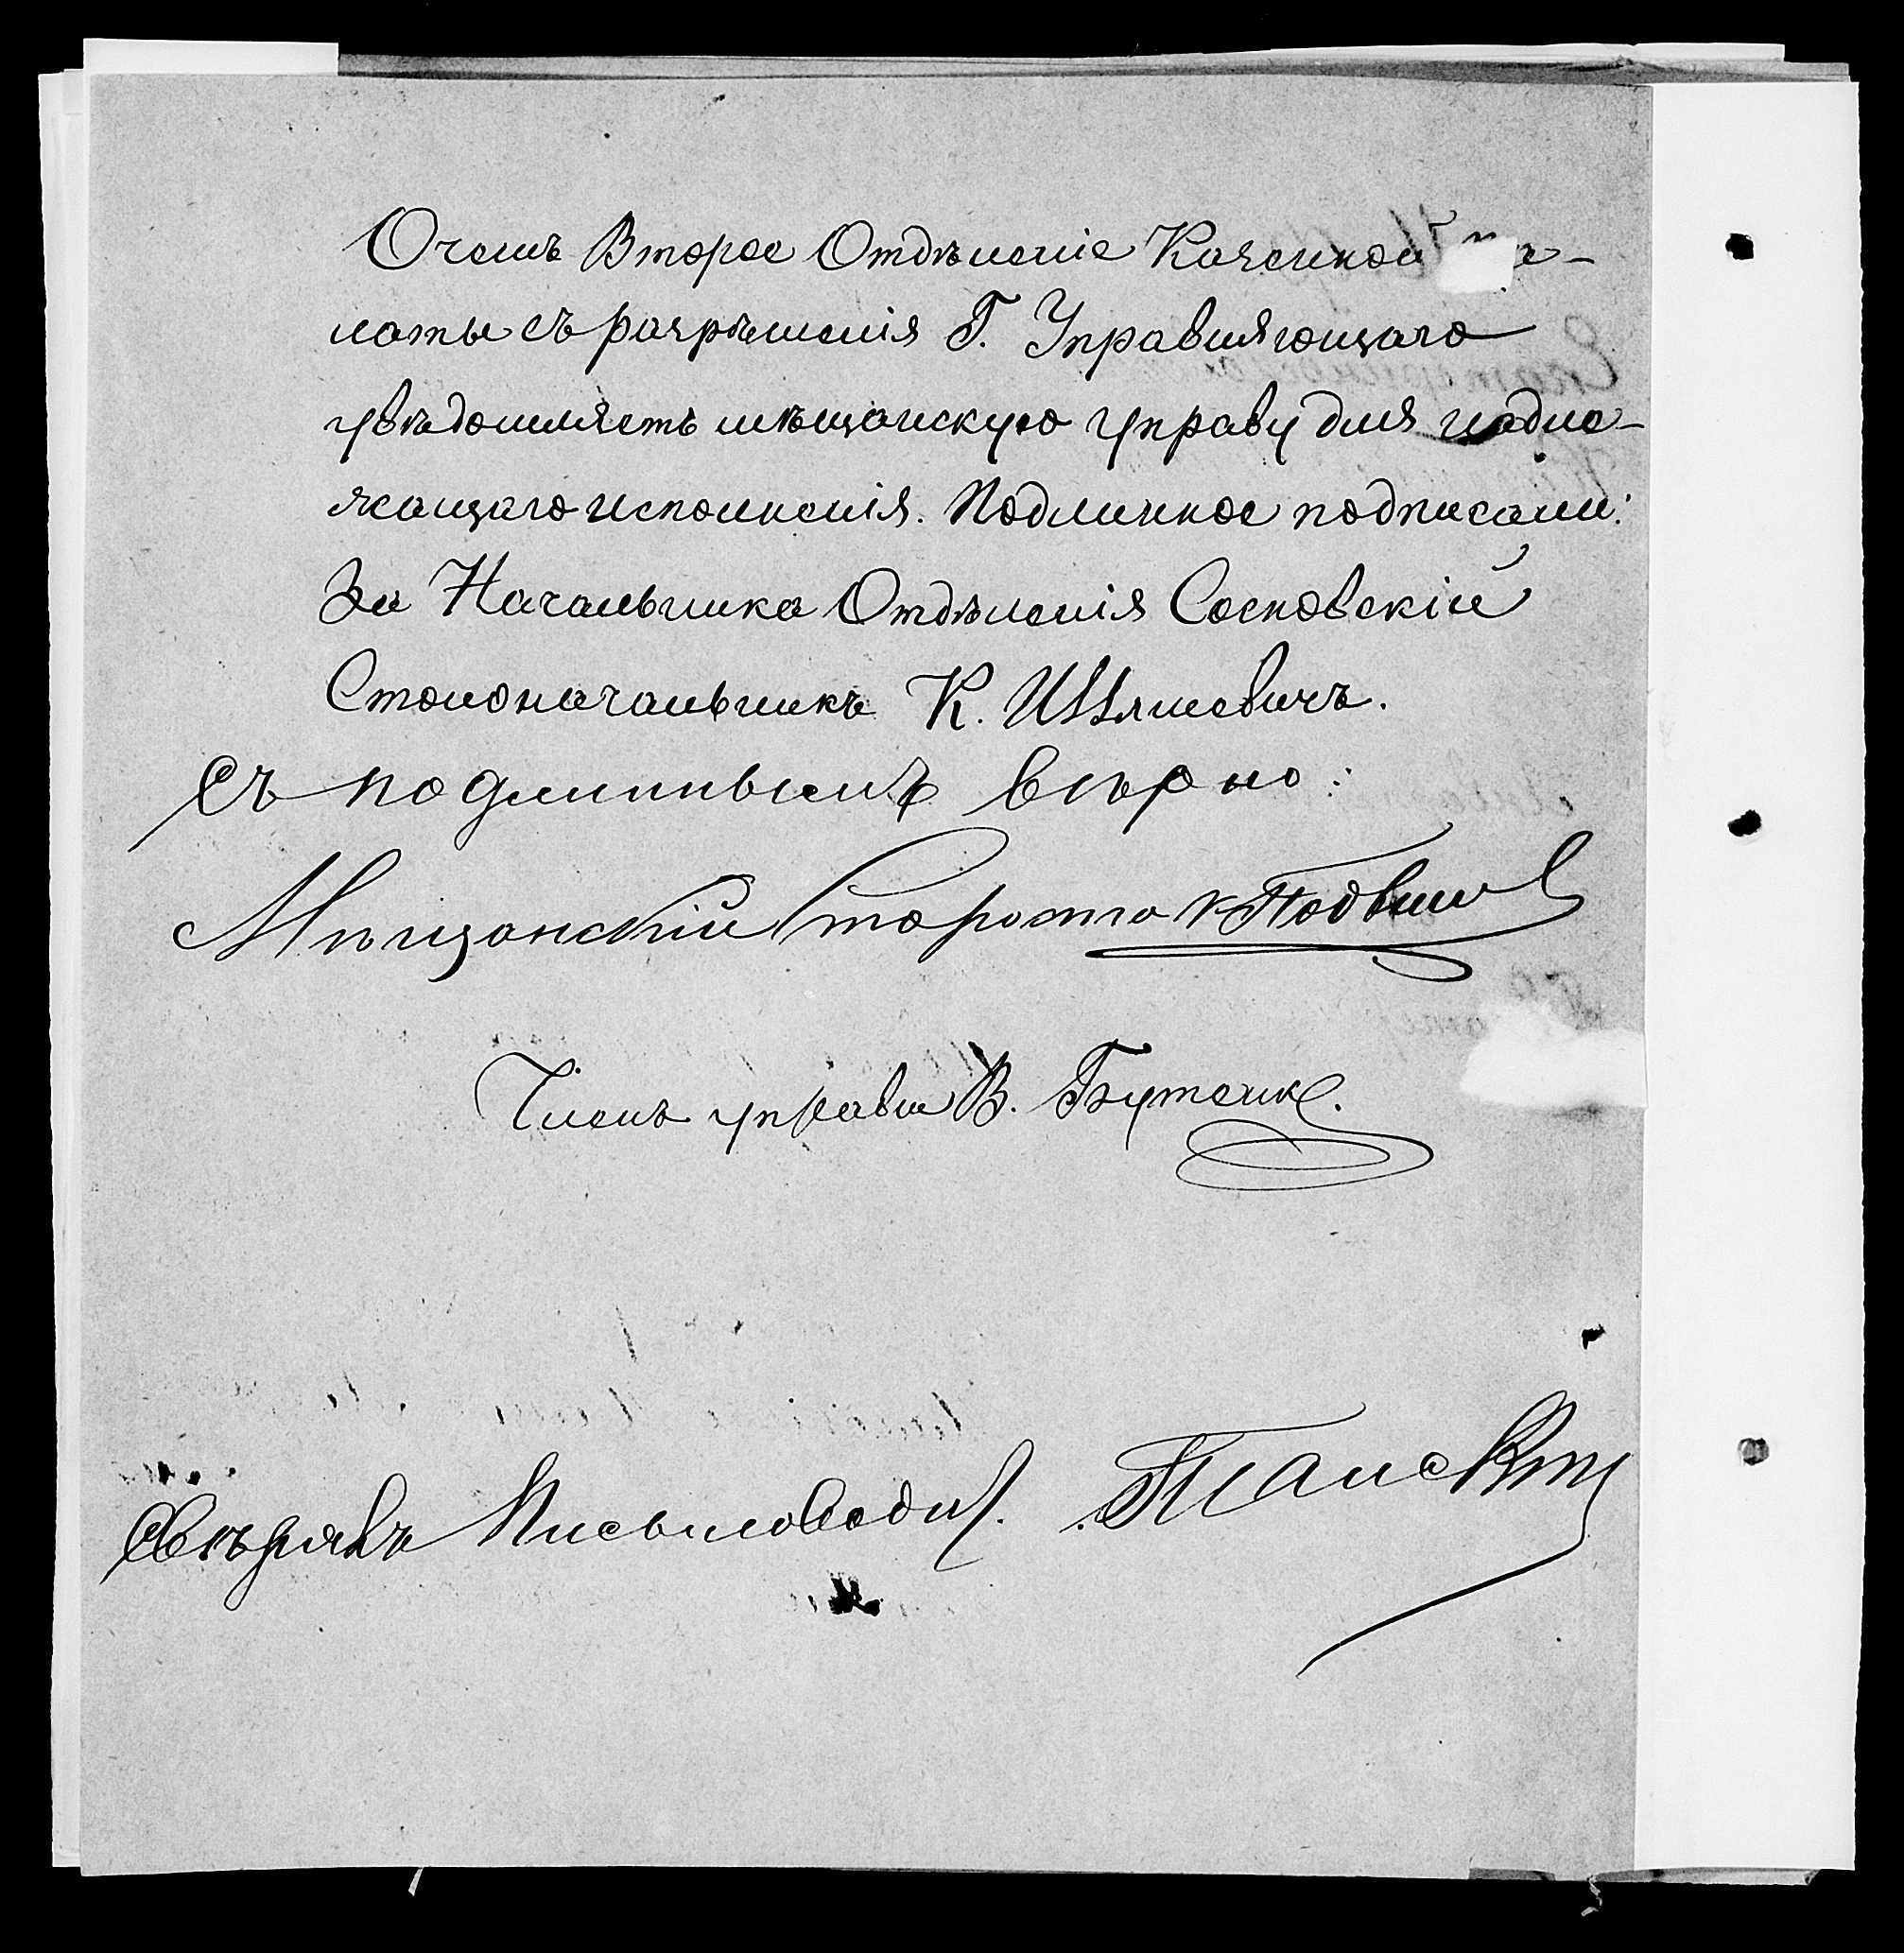 О чемъ Второе Отдѣленіе Казенной Па-
латы съ разрѣшенія Г. Управляющаго
увѣдомляетъ мѣщанскую управу для надле-
жащаго исполненія. Подлинное подписали:
За Начальника Отдѣленія Сосновскій
Столоначальникъ К. Шимлевичъ.
Съ подлиннымъ вѣрно:
Мѣщанскій Староста
Членъ управы В. Бутенк
Свѣрялъ Письмовод.